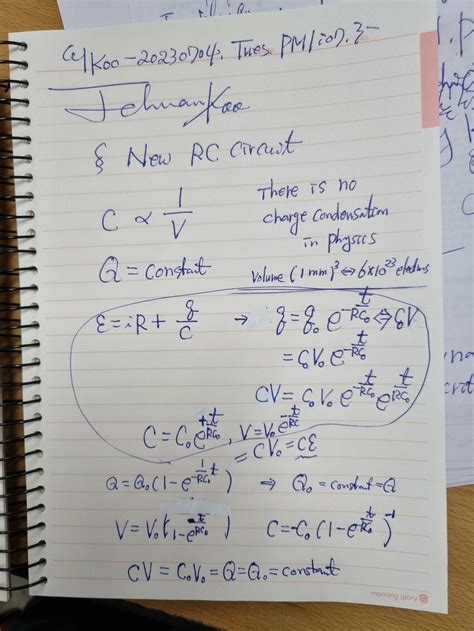 cyKoo-20230704, Tues. PM 10:07.3-
JehwanKoo
§ New RC Circuit
C ∝ 1/V
There is no
charge Condensation
in physics
Q = constant
Volume (1mm)³ ↔ 6×10²³ electrons
ε = iR + q/C → q = q₀ e^(-t/RC₀) ⇔ C₀V
= C₀V₀ e^(-t/RC₀)
CV = C₀V₀ e^(-t/RC₀) e^(t/RC₀)
C = C₀ e^(+t/RC₀), V = V₀ e^(-t/RC₀)
= CV₀ = Cε
Q = Q₀ (1 - e^(-1/RC₀ t)) → Q₀ = constant = Q
V = V₀ (1 - e^(-t/RC₀)) C = C₀ (1 - e^(-t/RC₀))⁻¹
CV = C₀V₀ = Q = Q₀ = constant
morning glory